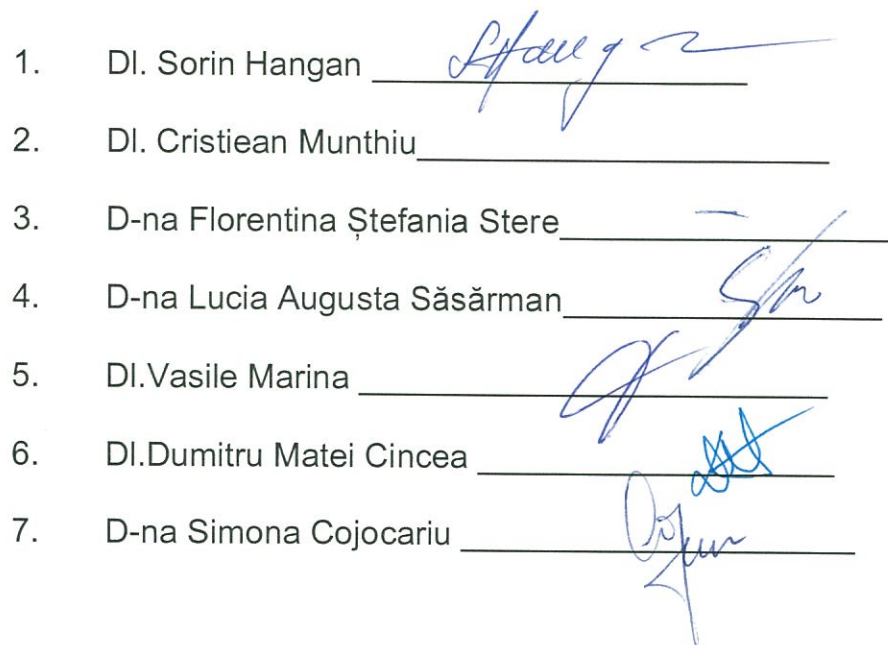 1. Dl. Sorin Hangan
2. Dl. Cristiean Munthiu
3. D-na Florentina Ștefania Stere
4. D-na Lucia Augusta Săsărman
5. Dl.Vasile Marina
6. Dl.Dumitru Matei Cincea
7. D-na Simona Cojocariu